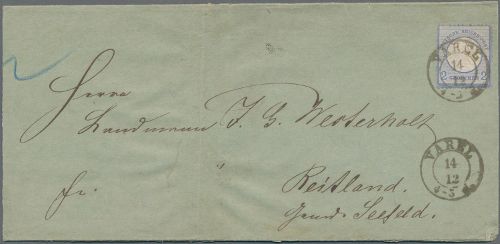 VAREL
14
12
4-5
2
GROSCHEN
2
Herrn
Landmann J. G. Westerholt
fr.
Reitland.
Gmde Seefeld.
VAREL
14
12
4-5